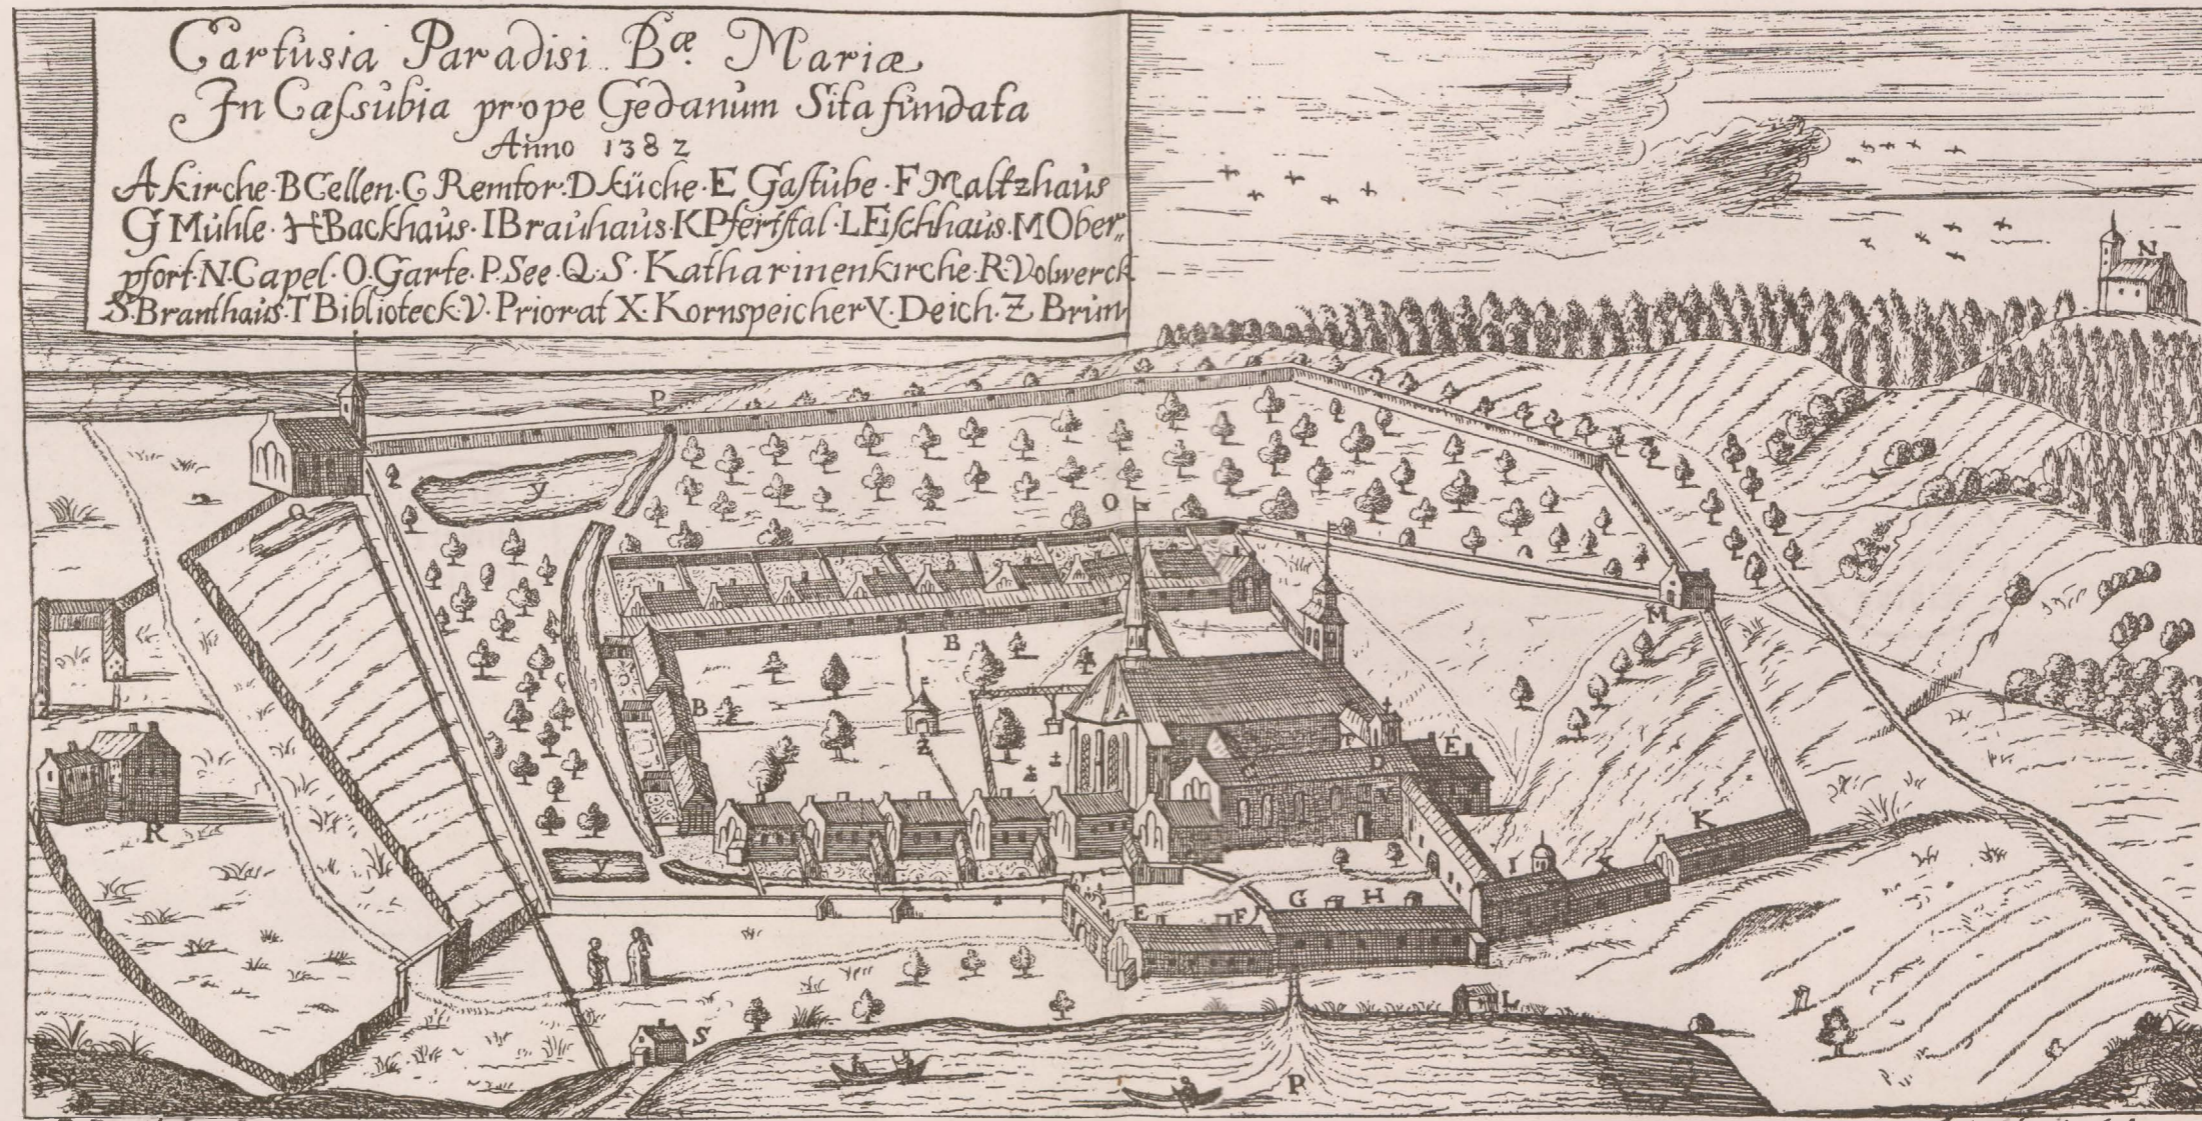 Cartusia Paradisi Bæ. Mariæ
In Casſubia prope Gedanum Sita fundata
Anno 1382
A Kirche · B Cellen · C Remtor · D Küche · E Gaſtube · F Maltzhaus
G Mühle · H Backhaus · I Brauhaus · K Pfertſtal · L Fiſchhaus · M Ober„
pfort · N · Capel · O · Garte · P · See · Q · S · Katharinenkirche · R · Volwerck
S · Branthaus · T Biblioteck · V · Priorat X · Kornspeicher Y · Deich · Z Brun
N
P
y
Q
O
M
B
B
A
Z
E
C
D
R
K
I
X
y
G
H
E
F
L
S
P